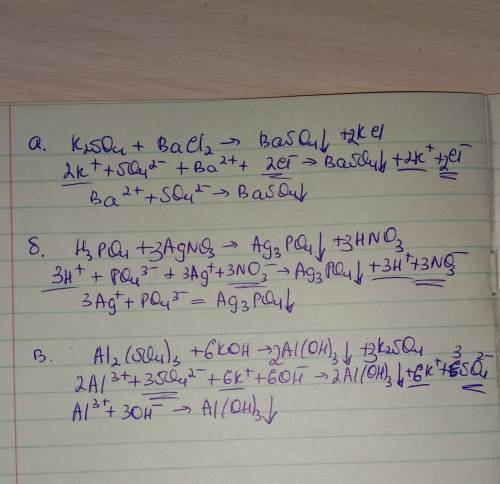 а. K₂SO₄ + BaCl₂ → BaSO₄↓ + 2KCl
2K⁺ + SO₄²⁻ + Ba²⁺ + 2Cl⁻ → BaSO₄↓ + 2K⁺ + 2Cl⁻
Ba²⁺ + SO₄²⁻ → BaSO₄↓
б. H₃PO₄ + 3AgNO₃ → Ag₃PO₄↓ + 3HNO₃
3H⁺ + PO₄³⁻ + 3Ag⁺ + 3NO₃⁻ → Ag₃PO₄↓ + 3H⁺ + 3NO₃⁻
3Ag⁺ + PO₄³⁻ = Ag₃PO₄↓
В. Al₂(SO₄)₃ + 6KOH → 2Al(OH)₃↓ + 3K₂SO₄
2Al³⁺ + 3SO₄²⁻ + 6K⁺ + 6OH⁻ → 2Al(OH)₃↓ + 6K⁺ + 3SO₄²⁻
Al³⁺ + 3OH⁻ → Al(OH)₃↓